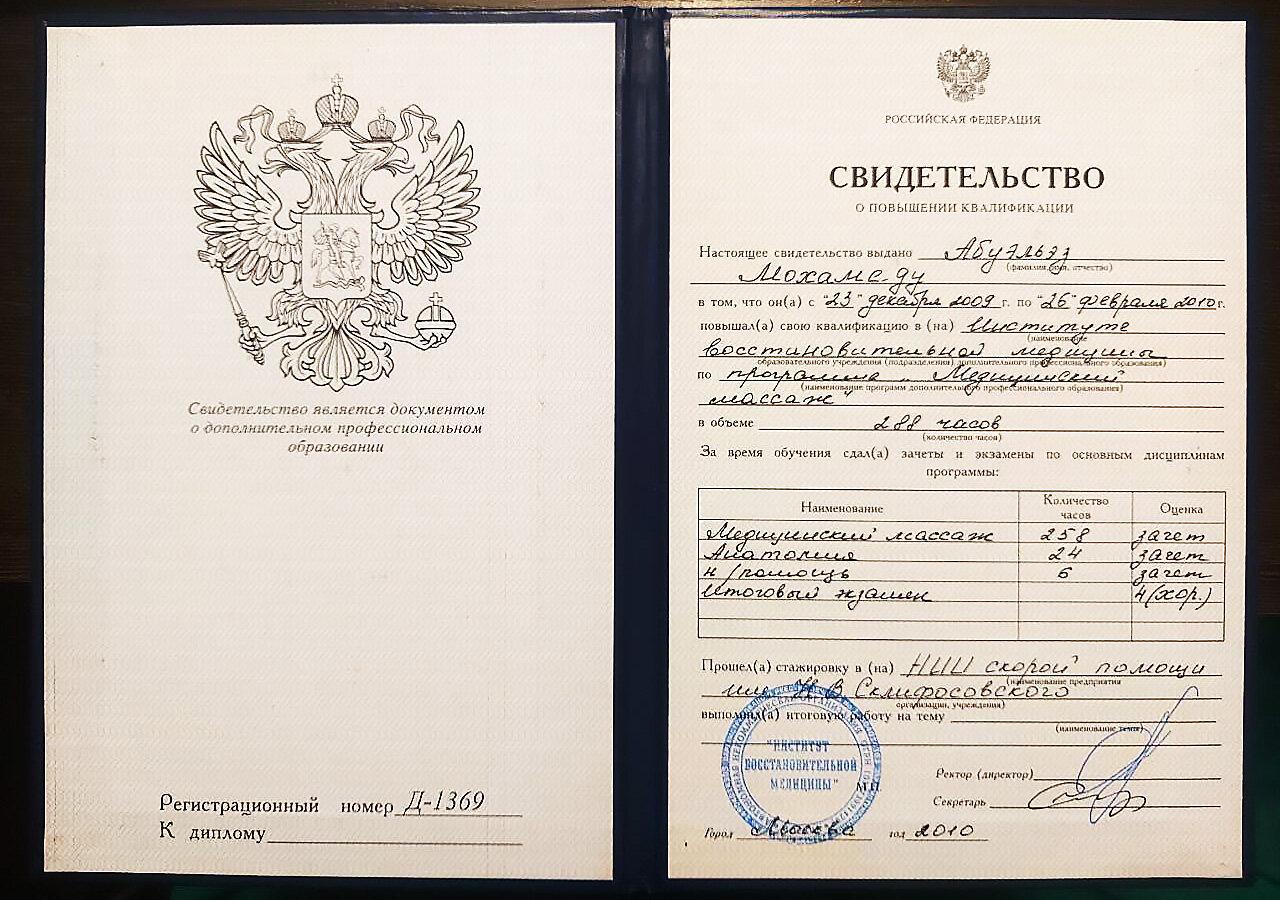 Свидетельство является документом
о дополнительном профессиональном
образовании
Регистрационный номер Д-1369
К диплому
РОССИЙСКАЯ ФЕДЕРАЦИЯ
СВИДЕТЕЛЬСТВО
О ПОВЫШЕНИИ КВАЛИФИКАЦИИ
Настоящее свидетельство выдано Абуэльэз
(фамилия, имя, отчество)
Мохамеду
в том, что он(а) с "23" декабря 2009 г. по "26" февраля 2010 г.
повышал(а) свою квалификацию в (на) Институте
(наименование
восстановительной медицины
образовательного учреждения (подразделения) дополнительного профессионального образования)
по программе "Медицинский
(наименование программ дополнительного профессионального образования)
массаж"
в объеме 288 часов
(количество часов)
За время обучения сдал(а) зачеты и экзамены по основным дисциплинам
программы:
Наименование Количество часов Оценка
Медицинский массаж 258 зачет
Анатомия 24 зачет
н/помощь 6 зачет
Итоговый экзамен 4 (хор.)
Прошел(а) стажировку в (на) НИИ скорой помощи
(наименование предприятия
им. Н.В. Склифосовского
организации, учреждения)
выполнил(а) итоговую работу на тему
(наименование темы)
"ИНСТИТУТ
ВОССТАНОВИТЕЛЬНОЙ
МЕДИЦИНЫ"
М.П.
Ректор (директор)
Секретарь
Город Москва год 2010